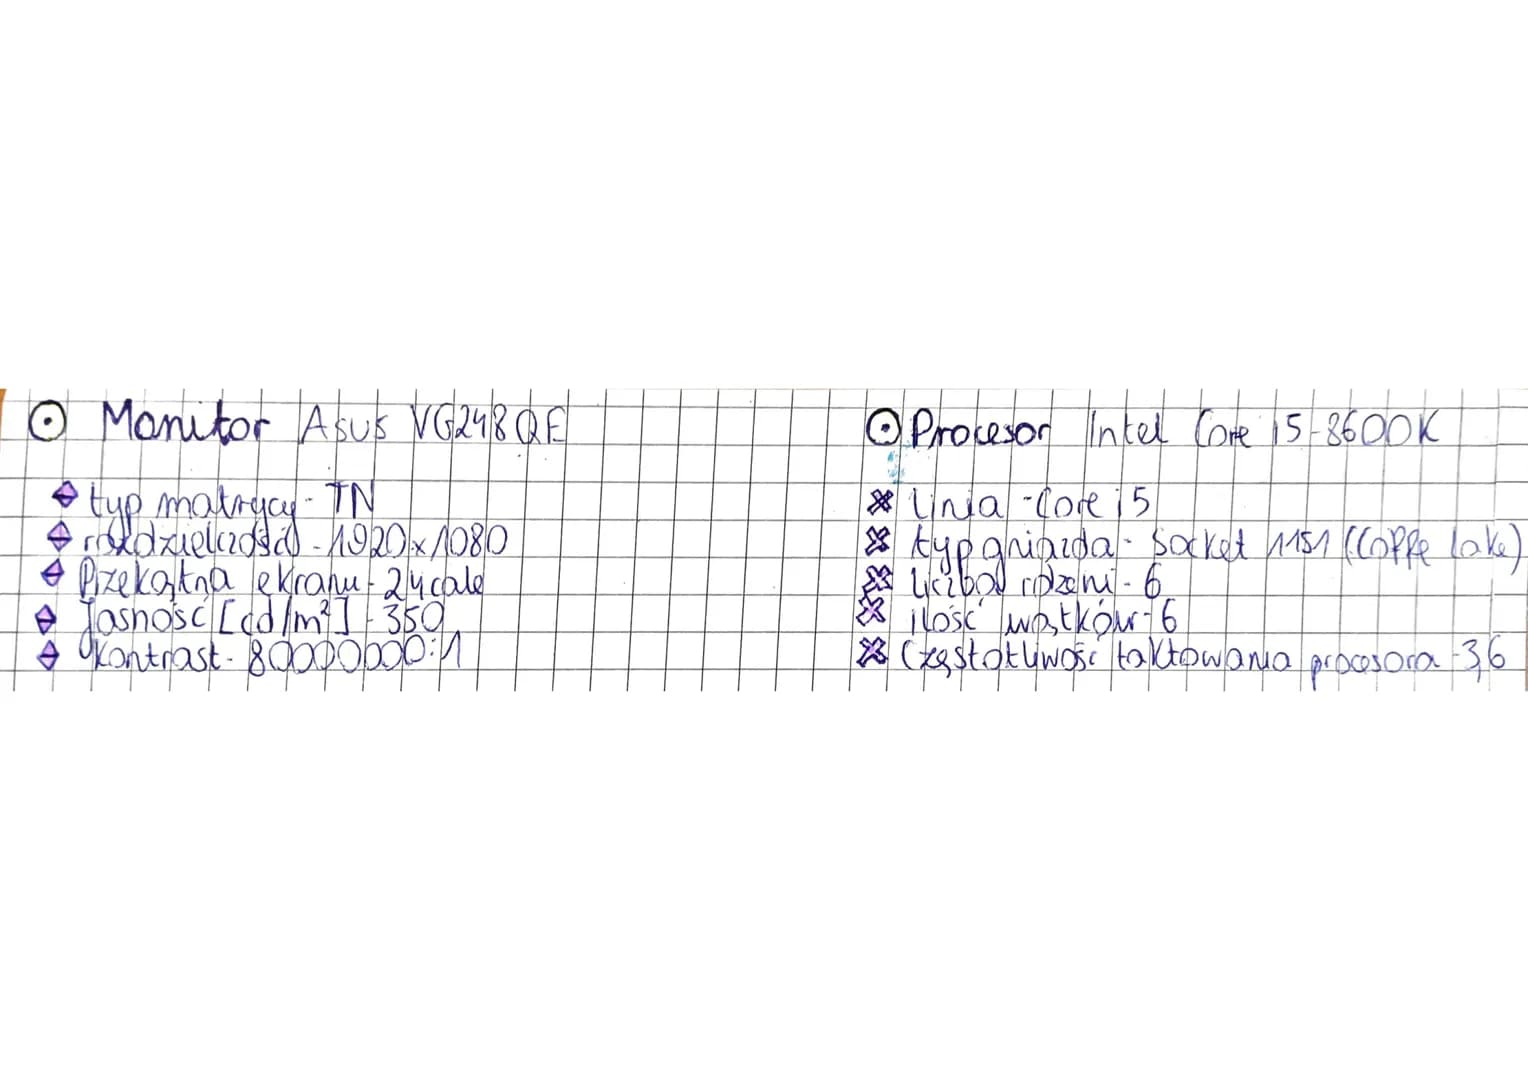 Monitor Asus VG248QE
typ matrycy - TN
rozdzielczość - 1920x1080
Przekątna ekranu - 24 cale
Jasność [cd/m²] - 350
kontrast - 80000000:1
Procesor Intel Core i5-8600K
linia - Core i5
typ gniazda - Socket 1151 (Coffe Lake)
liczba rdzeni - 6
ilość wątków - 6
Częstotliwość taktowania procesora - 3,6